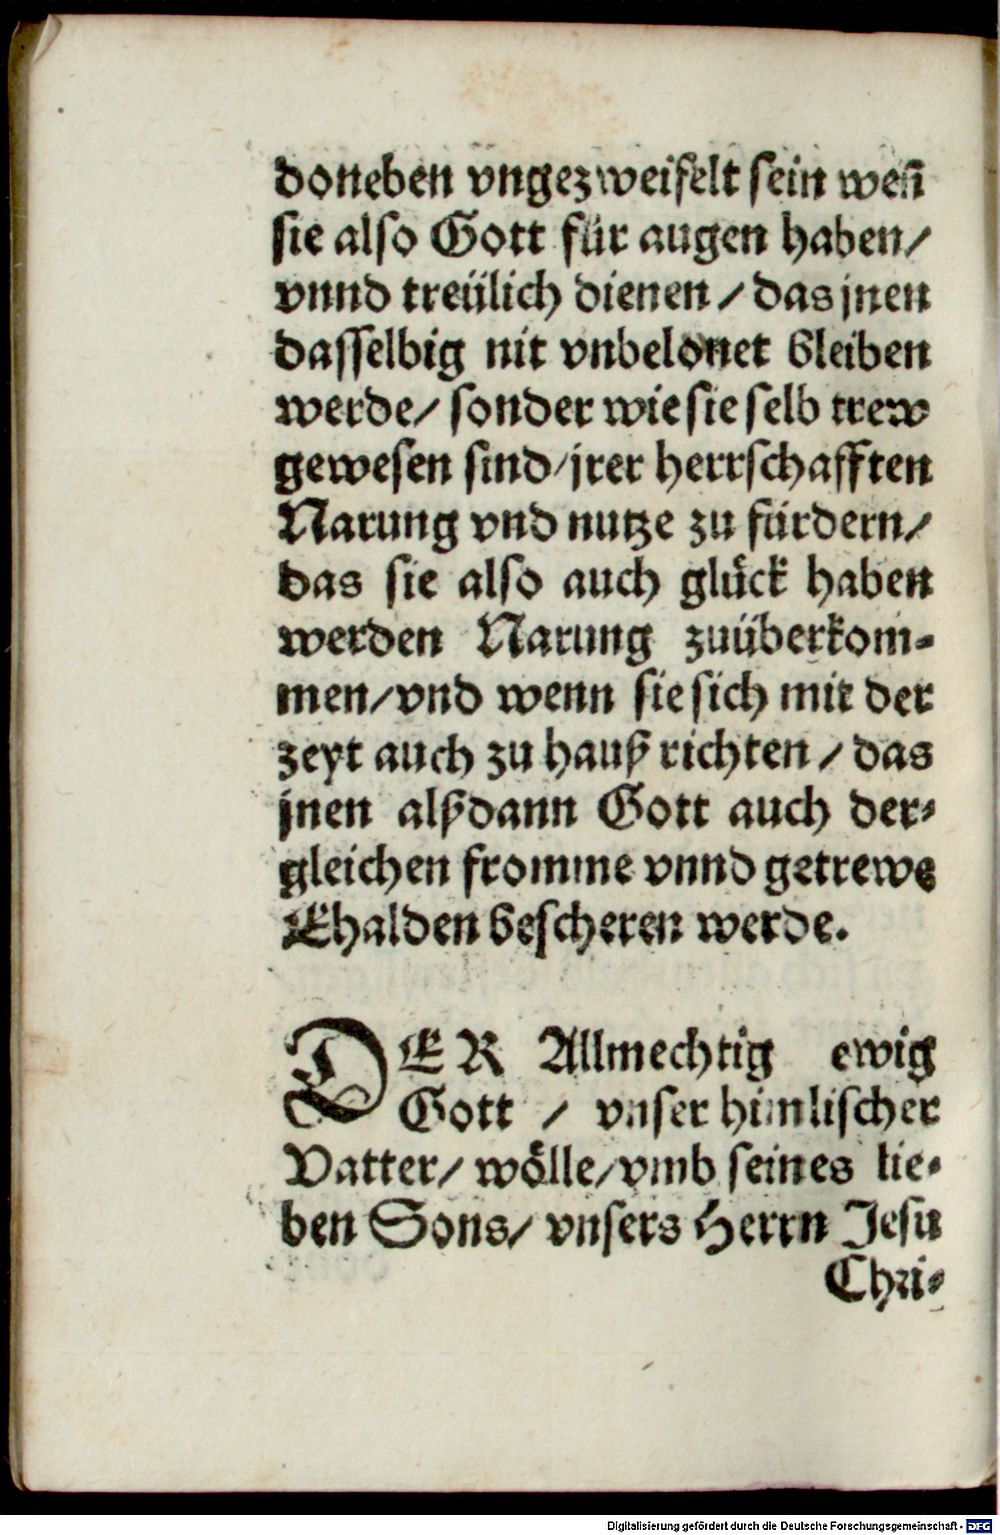 doneben vngezweifelt sein weñ
sie also Gott für augen haben/
vnnd treülich dienen / das jnen
dasselbig nit vnbelonet bleiben
werde/ sonder wie sie selb trew
gewesen sind/jrer herrschafften
Narung vnd nutze zu fürdern/
das sie also auch glück haben
werden Narung zuüberkom-
men/vnd wenn sie sich mit der
zeyt auch zu hauß richten / das
jnen alßdann Gott auch der-
gleichen fromme vnnd getrewe
Ehalden bescheren werde.
DER Allmechtig ewig
Gott / vnser himlischer
Vatter/ wölle/vmb seines lie-
ben Sons/ vnsers Herrn Jesu
Chri-
Digitalisierung gefördert durch die Deutsche Forschungsgemeinschaft - DFG